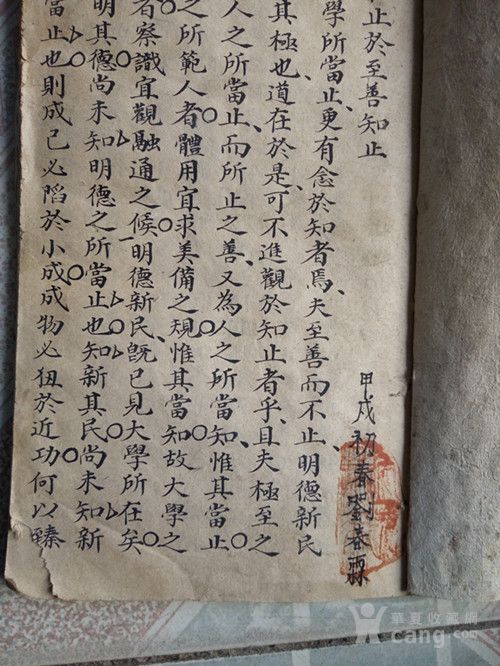 止於至善知止
甲戌初春劉春霖
學所當止、更有念於知者焉、夫至善而不止、明德新民
其極也道在於是、可不進觀於知止者乎、且夫極至之
人之所當止、而所止之善、又為人之所當知、惟其當止
之所範人者體用宜求美備之規惟其當知故大學之
者察識宜觀融通之候明德新民、旣已見大學所在矣
明其德尚未知明德之所當止也知新其民尚未知新
當止也則成己必陷於小成成物必狃於近功何以臻
華夏收藏網
cang.com